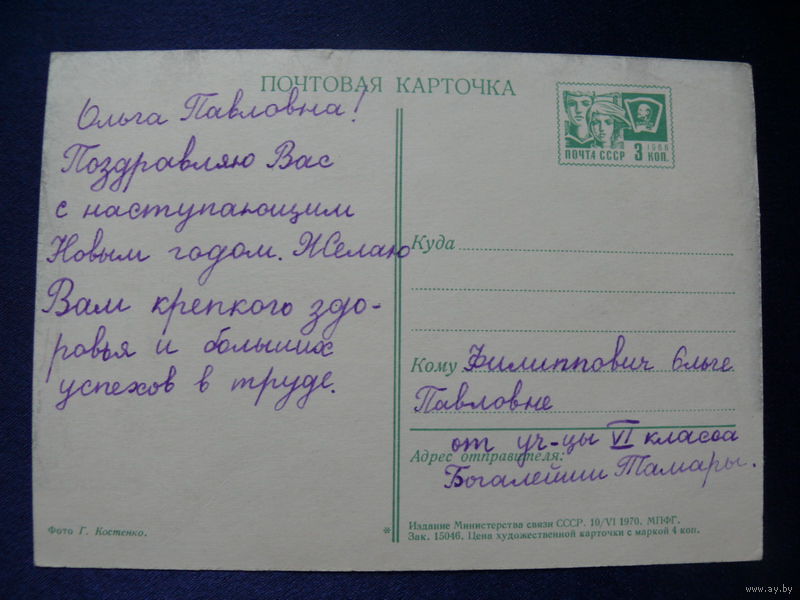 ПОЧТОВАЯ КАРТОЧКА
Ольга Павловна!
Поздравляю Вас
с наступающим
Новым годом. Желаю
Вам крепкого здо-
ровья и больших
успехов в труде.
Фото Г. Костенко.
*
ПОЧТА СССР 3 КОП. 1966
Куда
Кому Филиппович Ольге
Павловне
от уч-цы VI класса
Адрес отправителя:
Богалейши Тамары.
Издание Министерства связи СССР. 10/VI 1970. МПФГ.
Зак. 15046. Цена художественной карточки с маркой 4 коп.
www.ay.by